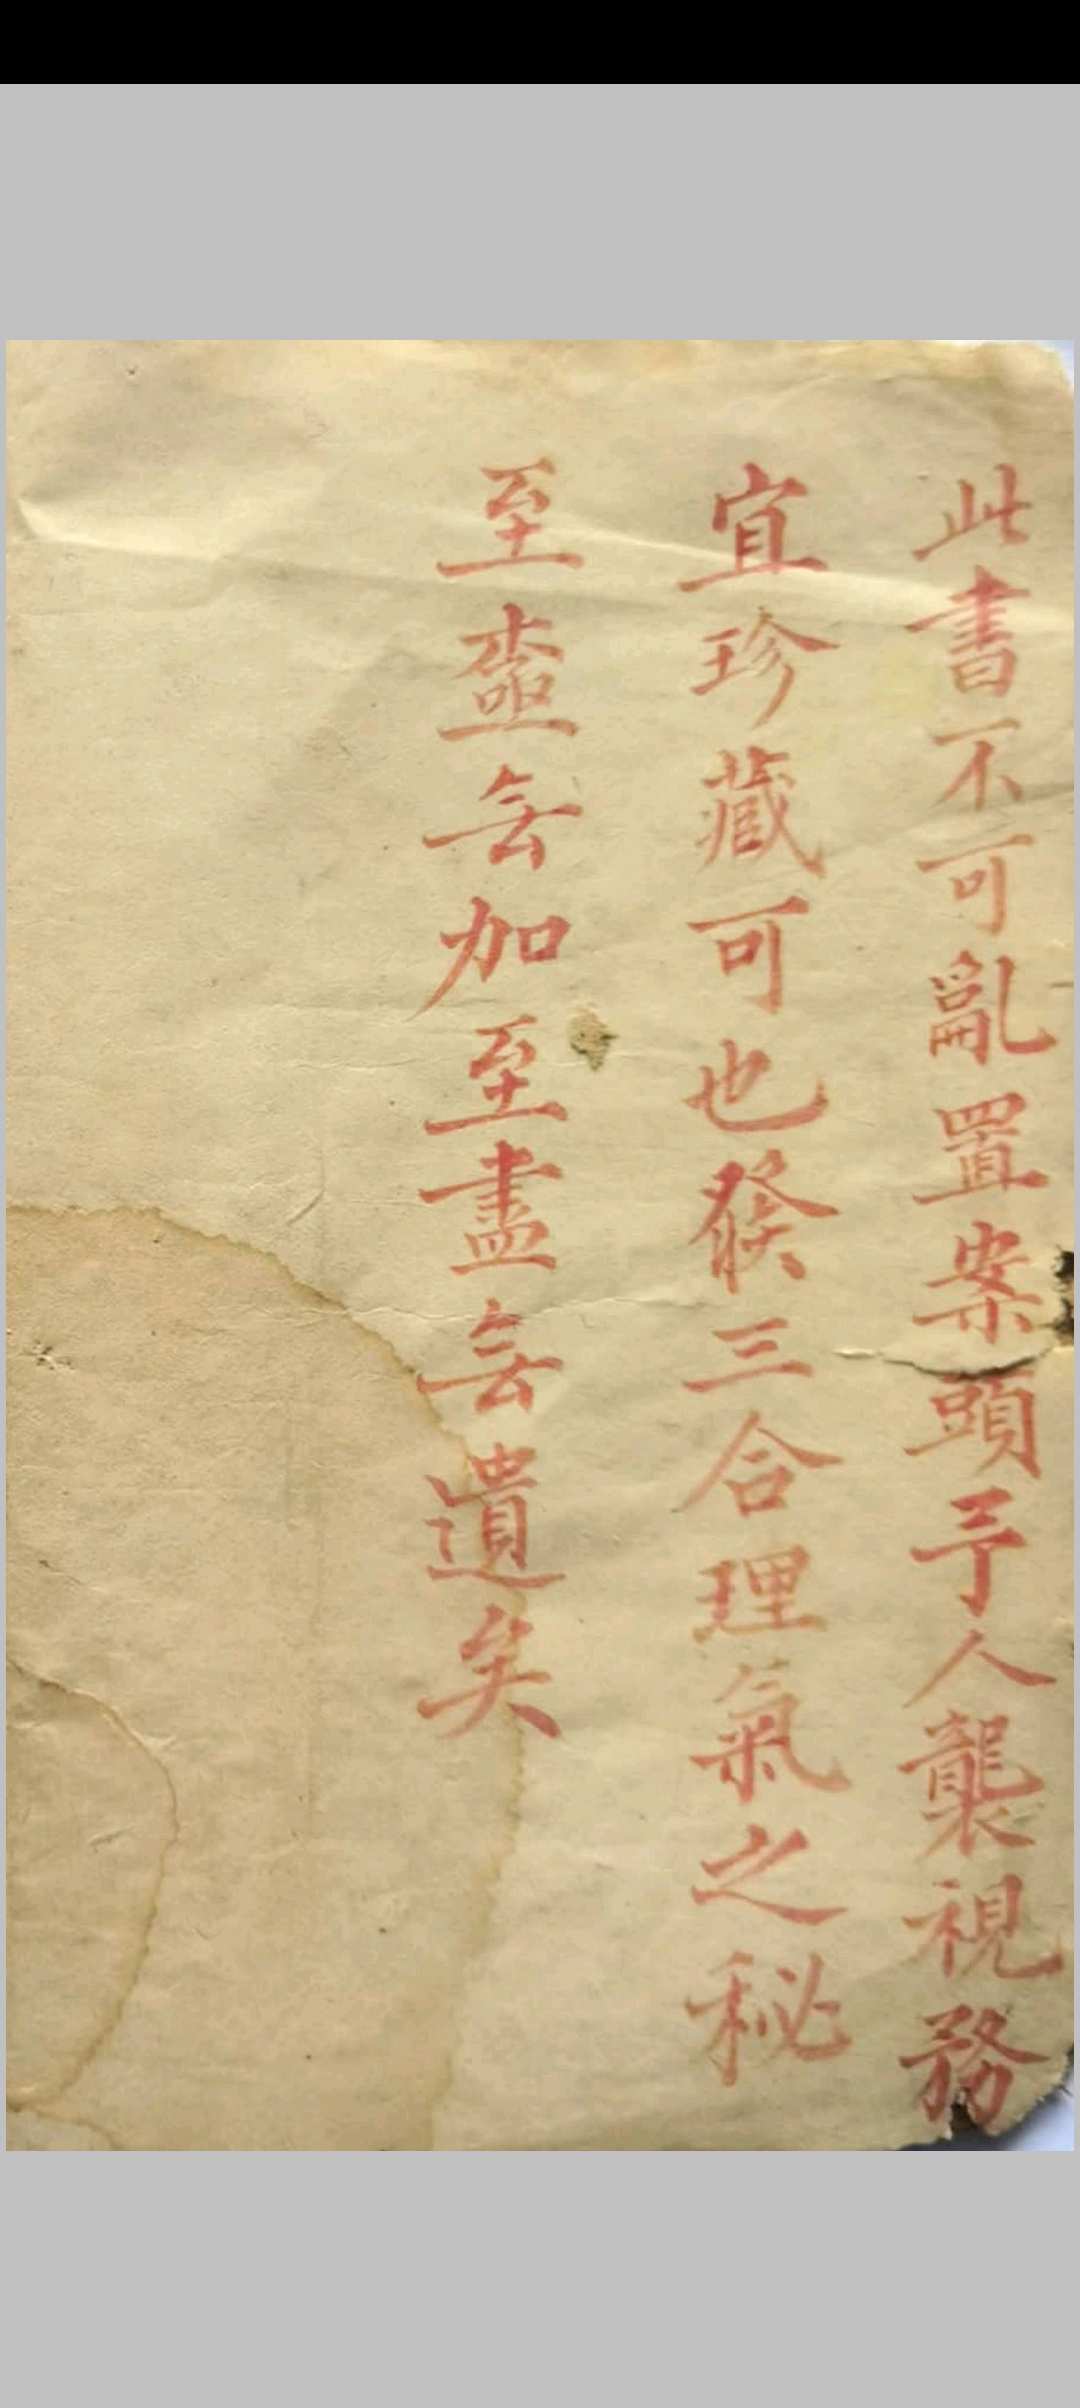 此書不可亂置案頭予人襲視務
宜珍藏可也發三合理氣之秘
至無加至盡無遺矣